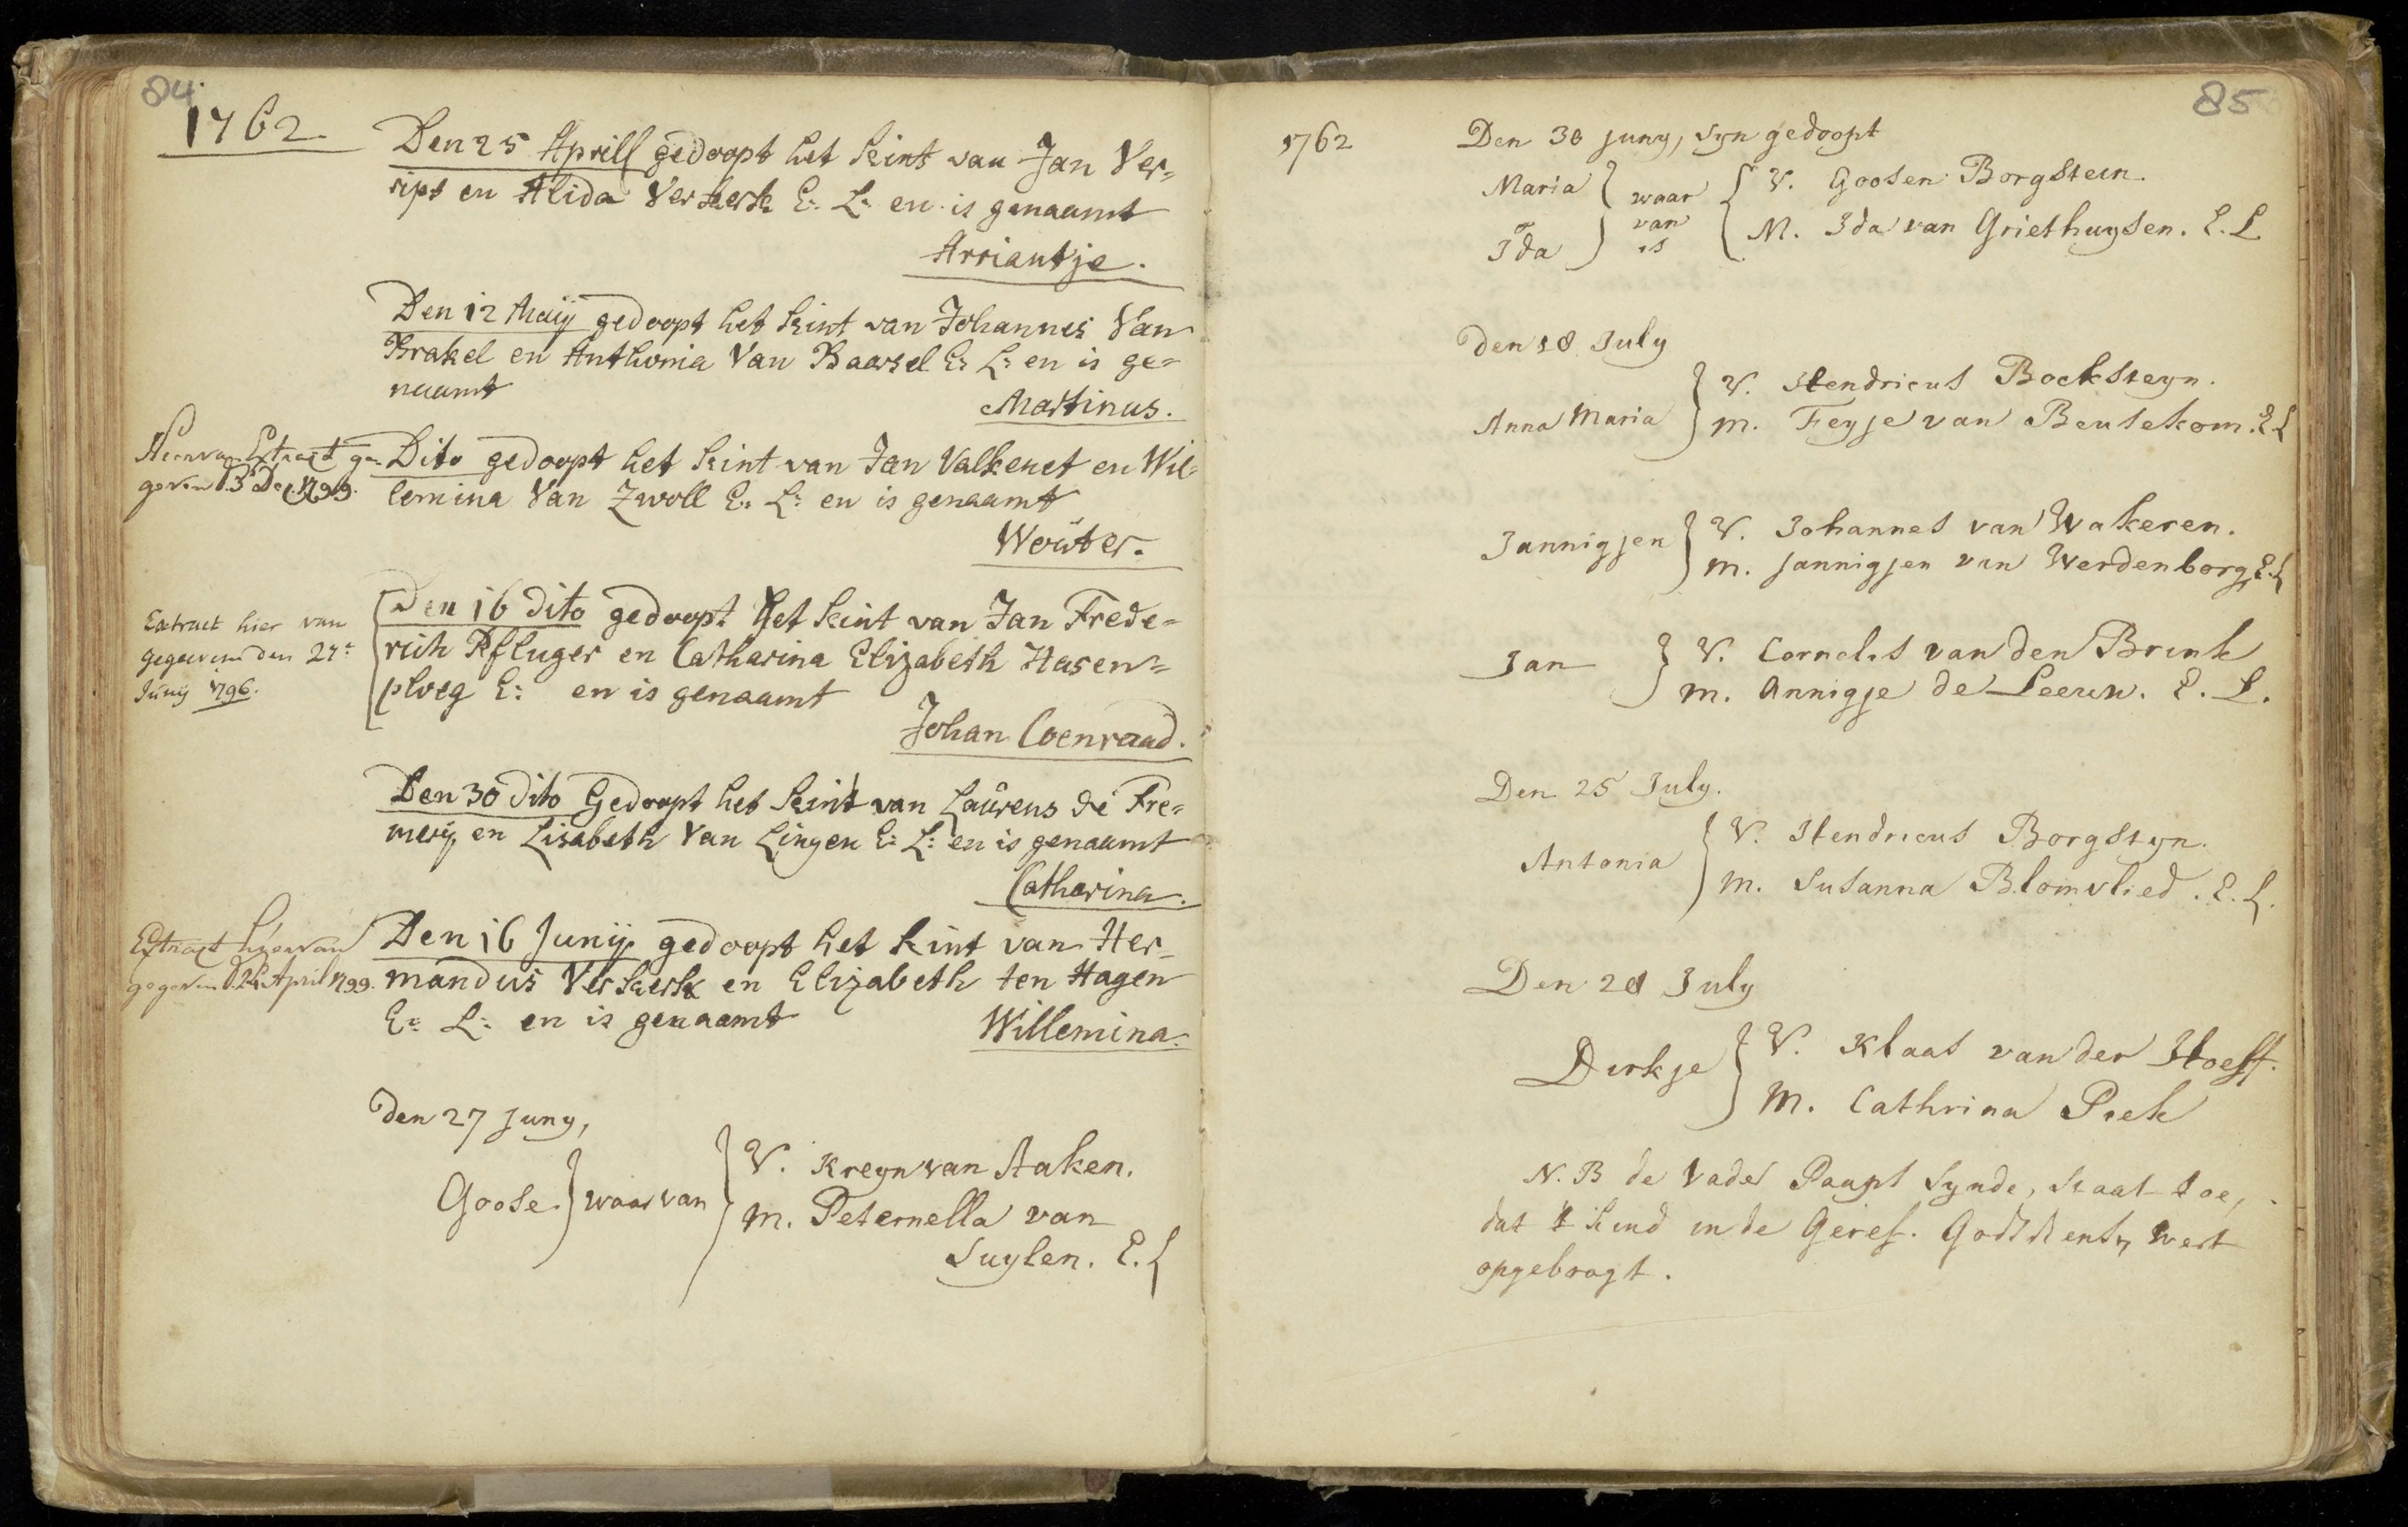 84
1762
Den 25 Aprill gedoopt het kint van Jan Ver=
ript en Alida Verkerk E: L: en is genaamt
Arriantje.
Den 12 Maij gedoopt het kint van Johannes Van
Brakel en Anthonia Van Baarsel E: L: en is ge=
naamt
Martinus.
Hiervan Extract ge=
geven d. 3 Dec. 1799.
Dito gedoopt het kint van Jan Valkenet en Wil=
lemina Van Zwoll E: L: en is genaamt
Wouter.
Extract hier van
gegeevend den 27e
Junij 1796.
Den 16 dito gedoopt het kint van Jan Frede=
rich Pfluger en Catharina Elizabeth Hasen=
ploeg E: en is genaamt
Johan Coenraad.
Den 30 dito Gedoopt het kint van Laurens de Fre=
merij en Lisabeth Van Lingen E: L: en is genaamt
Catharina.
Extract hiervan
gegeven d. 24 April 1799.
Den 16 Junij gedoopt het kint van Her=
mandus Verkerk en Elizabeth ten Hagen
E: L: en is genaamt
Willemina.
den 27 Juny,
Goose. } waar van } V. Kreyn van Aaken.
M. Peternella van
Suylen. E. L
85
1762
Den 30 Juny, syn gedoopt
Maria } waar { V. Goosen Borgstein.
Ida } van is { M. Ida van Griethuysen. E. L
den 18 July
Anna Maria } V. Hendricus Bocksteyn.
M. Feyje van Beusekom. E L
Jannigjen } V. Johannes van Wakeren.
M. Jannigjen van Werdenborg E. L
Jan } V. Cornelis van den Brink
M. Annigje de Leeuw. E. L.
Den 25 July.
Antonia } V. Hendricus Borgstyn.
M. Susanna Blomvlied. E. L.
Den 28 July
Dirkje } V. Klaas van der Hoeff.
M. Cathrina Piek
N. B de Vader Paapst Synde, staat toe,
dat t kind in de Geref. Godtdienst, wert
opgebragt.